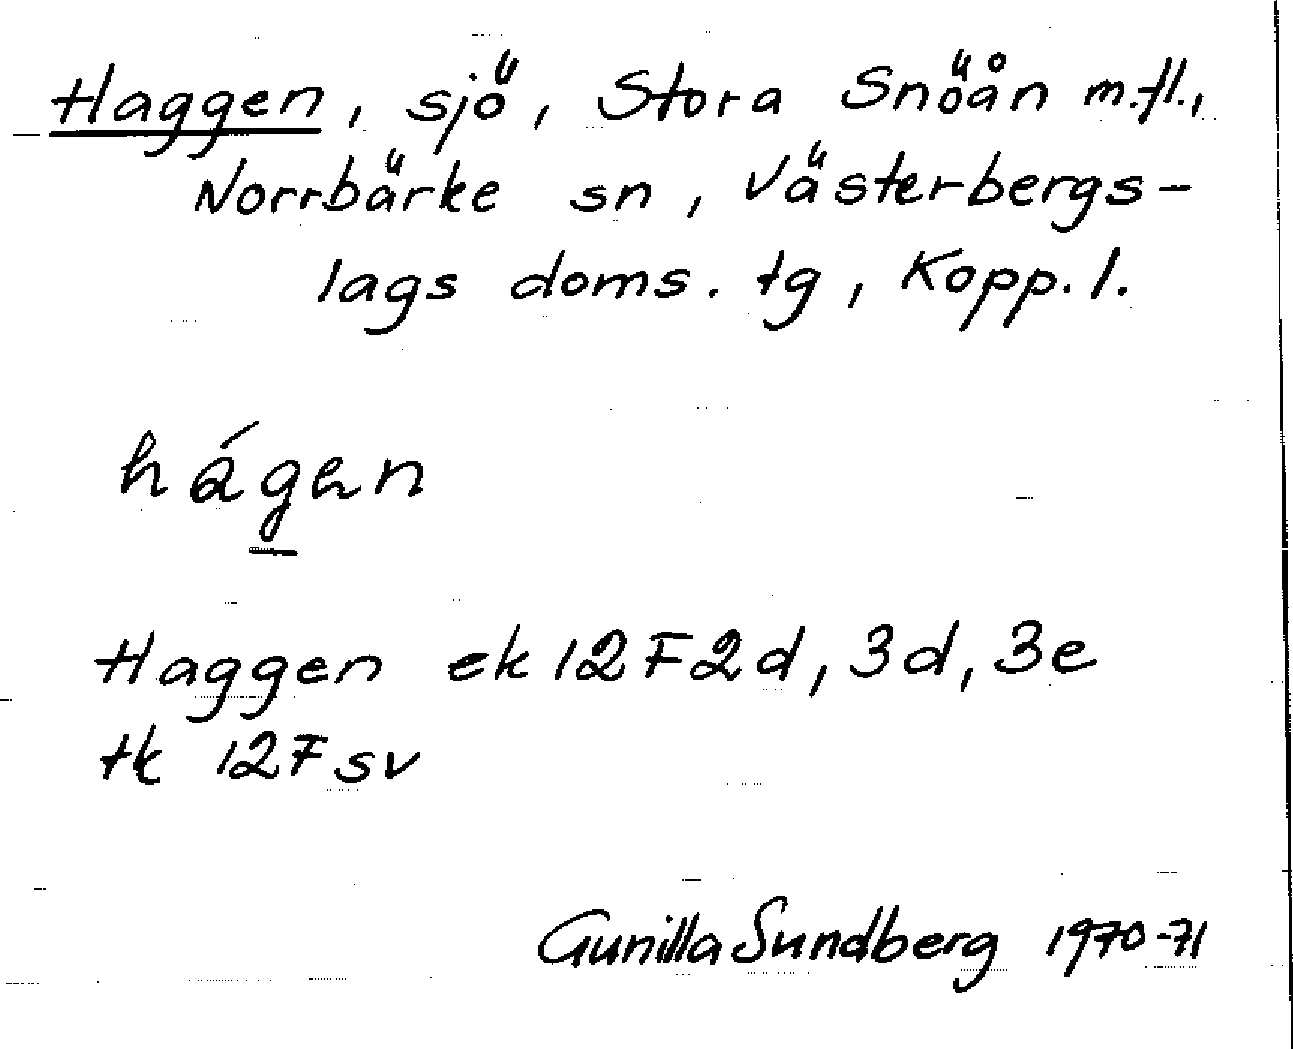 Haggen, sjö, Stora Snöån m.fl.,
Norrbärke sn, Västerbergs-
lags doms. tg, Kopp. l.
hág̲en
Haggen ek 12F2d, 3d, 3e
tk 12F sv
Gunilla Sundberg 1970-71